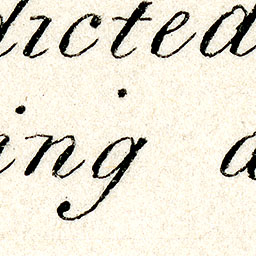 dicted
ing a